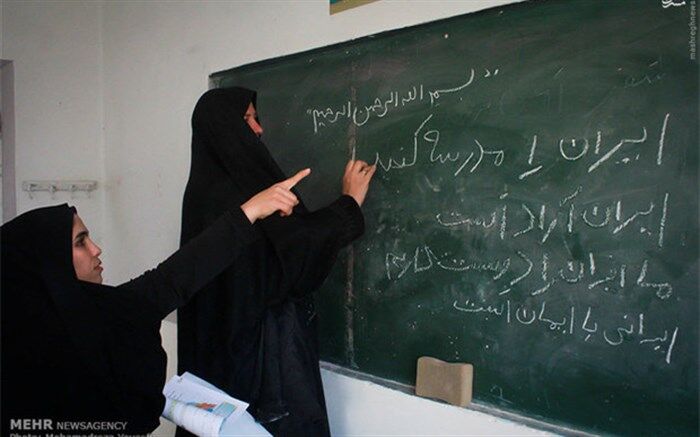 "بسم الله الرحمن الرحیم"
ایران را مدرسه کنید
ایران آزاد است
ما ایران را دوست داریم
ایرانی با ایمان است
MEHR NEWSAGENCY
Photo: Mohamadreza